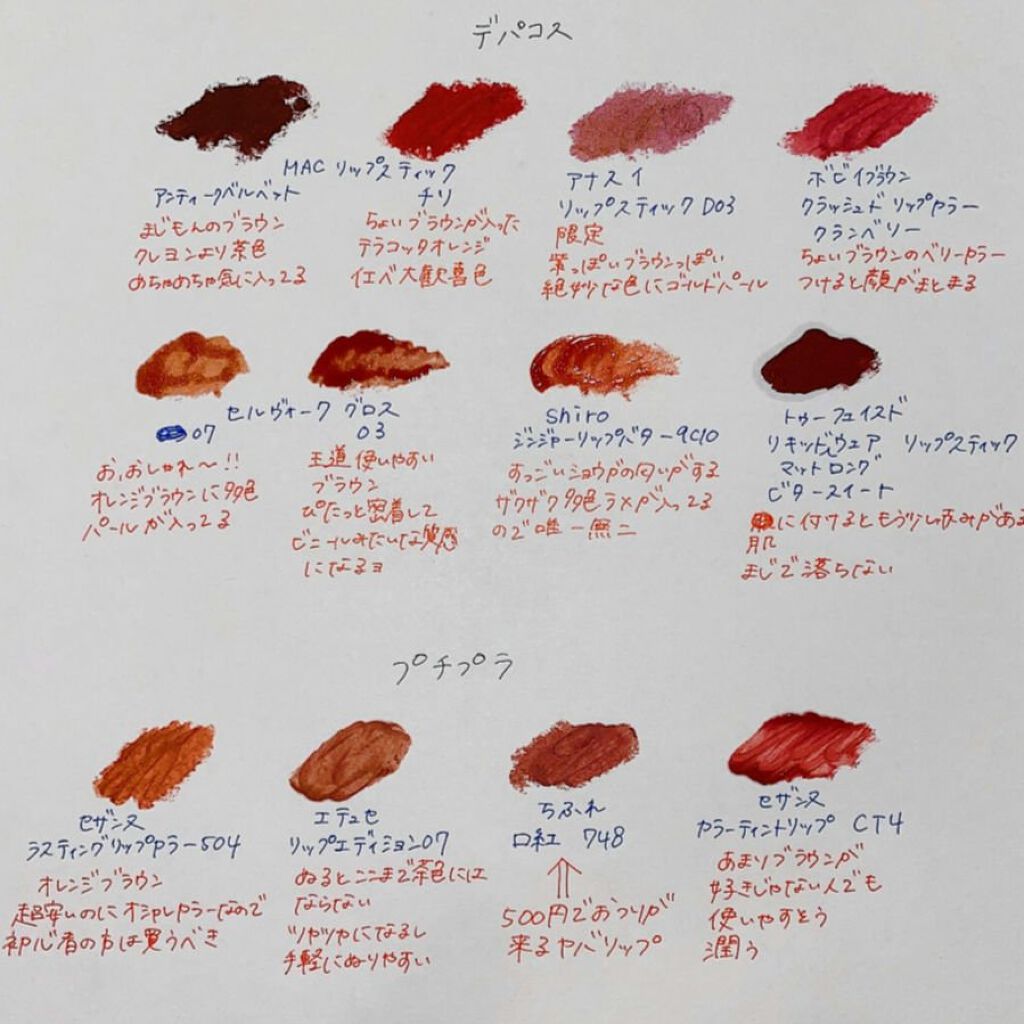 デパコス
MAC リップスティック
アンティークベルベット
まじもんのブラウン
クレヨンより茶色
めちゃめちゃ気に入ってる
チリ
ちょいブラウンが入った
テラコッタオレンジ
イエベ大歓喜色
アナスイ
リップスティック D03
限定
紫っぽいブラウンっぽい
絶妙な色にゴールドパール
ボビイブラウン
クラッシュド リップカラー
クランベリー
ちょいブラウンのベリーカラー
つけると顔がまとまる
セルヴォーク グロス
07
お,おしゃれ〜!!
オレンジブラウンに多色
パールが入ってる
03
王道使いやすい
ブラウン
ぴたっと密着して
ビニールみたいな質感
になるヨ
shiro
ジンジャーリップバター9C10
すっごいショウガの匂いがする
ザクザク多色ラメが入ってる
ので唯一無二
トゥーフェイスド
リキッドウェア リップスティック
マットロング
ビタースイート
に付けるともう少し赤みがある
肌
まじで落ちない
プチプラ
セザンヌ
ラスティングリップカラー504
オレンジブラウン
超安いのにオシャレカラーなので
初心者の方は買うべき
エテュセ
リップエディション07
ぬるとここまで茶色には
ならない
ツヤツヤになるし
手軽にぬりやすい
ちふれ
口紅 748
500円でおつりが
来るヤバリップ
セザンヌ
カラーティントリップ CT4
あまりブラウンが
好きじゃない人でも
使いやすそう
潤う